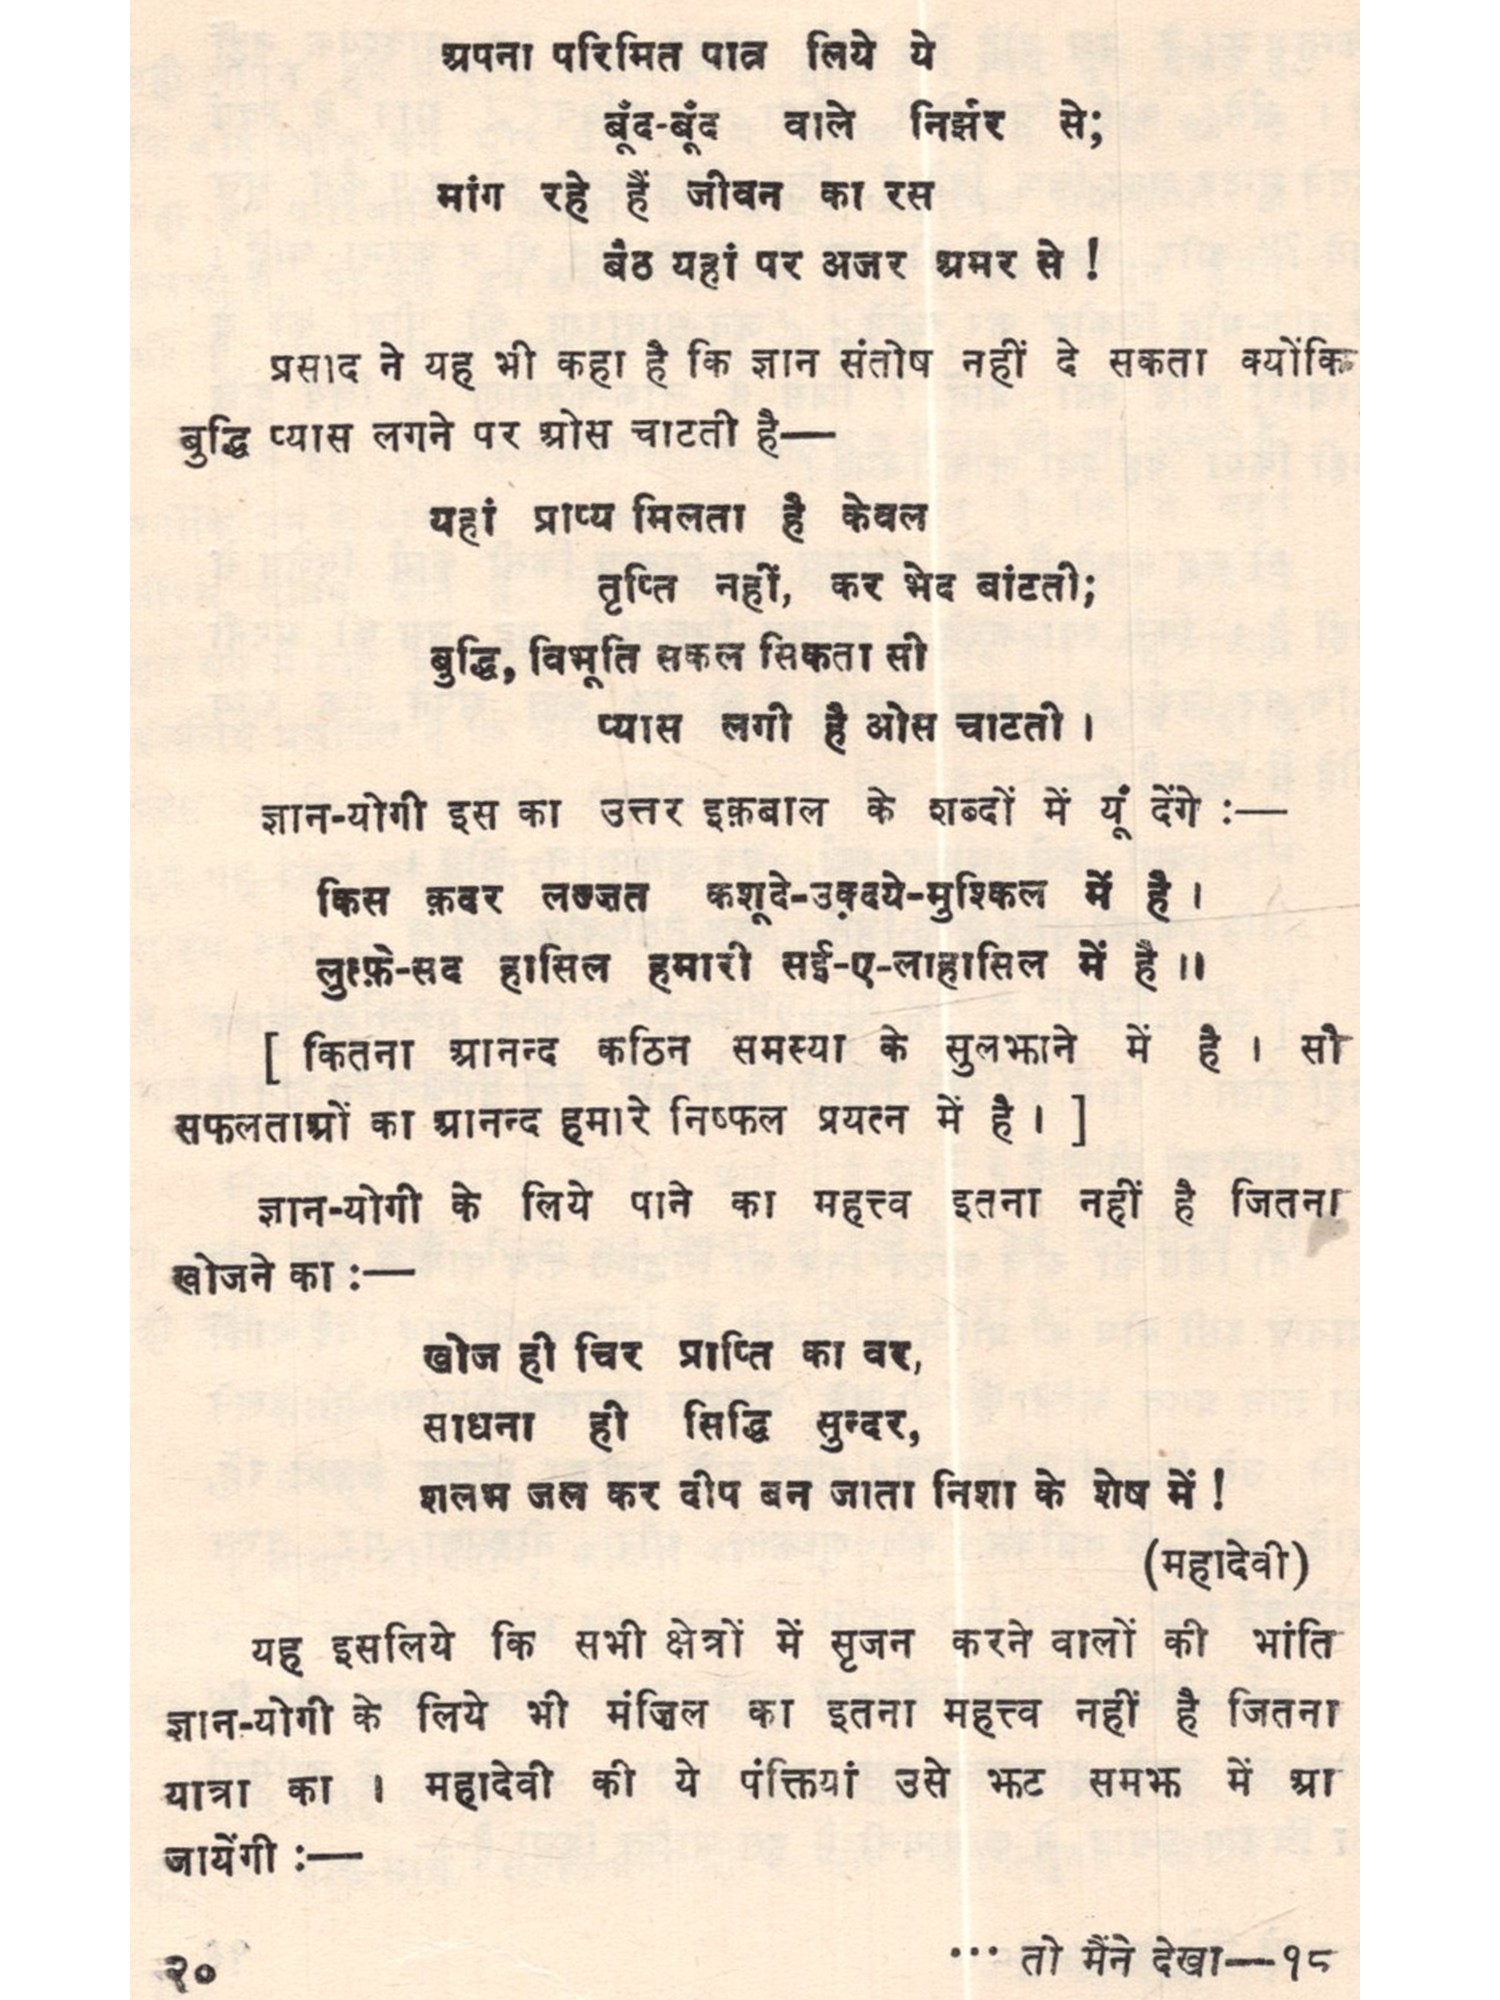 अपना परिमित पात्र लिये ये
बूँद-बूँद वाले निर्झर से;
मांग रहे हैं जीवन का रस
बैठ यहां पर अजर अमर से !
प्रसाद ने यह भी कहा है कि ज्ञान संतोष नहीं दे सकता क्योंकि
बुद्धि प्यास लगने पर ओस चाटती है—
यहां प्राप्य मिलता है केवल
तृप्ति नहीं, कर भेद बांटती;
बुद्धि, विभूति सकल सिकता सी
प्यास लगी है ओस चाटती ।
ज्ञान-योगी इस का उत्तर इक़बाल के शब्दों में यूं देंगे :—
किस क़दर लज्ज़त कशूदे-उक़्दये-मुश्किल में है ।
लुत्फ़े-सद हासिल हमारी सई-ए-लाहासिल में है ॥
[ कितना आनन्द कठिन समस्या के सुलझाने में है । सौ
सफलताओं का आनन्द हमारे निष्फल प्रयत्न में है । ]
ज्ञान-योगी के लिये पाने का महत्त्व इतना नहीं है जितना
खोजने का :—
खोज ही चिर प्राप्ति का वर,
साधना ही सिद्धि सुन्दर,
शलभ जल कर दीप बन जाता निशा के शेष में !
(महादेवी)
यह इसलिये कि सभी क्षेत्रों में सृजन करने वालों की भांति
ज्ञान-योगी के लिये भी मंज़िल का इतना महत्त्व नहीं है जितना
यात्रा का । महादेवी की ये पंक्तियां उसे झट समझ में आ
जायेंगी :—
२० ... तो मैंने देखा—१८